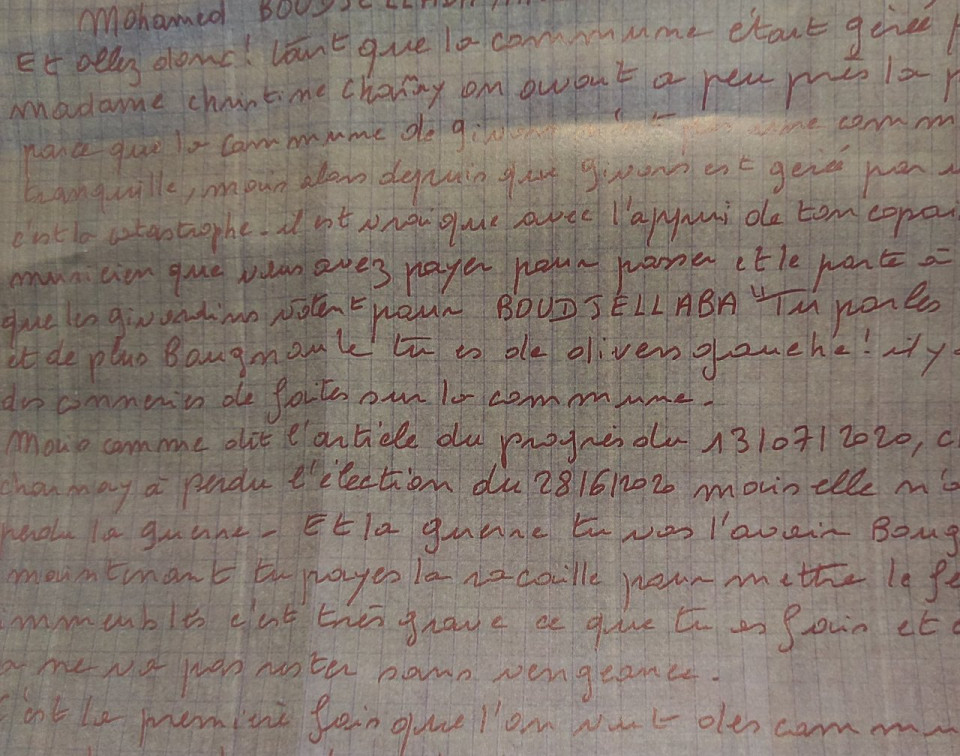 Mohamed BOUDJELLABA
Et allez donc! tant que la commmune était géreé
madame christine charnay on avait a peu près la
parce que la commmune de givors comm
tranquille, mais alors depuis que givors est géreé par
c'est la catastrophe. il est vrai que avec l'appui de ton copai
musicien que vous avez payer pour passer et le porte à
que les girondins votent pour BOUDJELLABA" Tu parles
et de plus Bougnoule tu es de divers gauche! il y
des conneries de faites sur la commmune.
Mais comme dit l'article du progrès du 13/07/2020, c
charnay à perdu l'élection du 28/6/2020 mais elle n'a
perdu la guerre - Et la guerre tu vas l'avoir Boug
maintenant tu payes la racaille pour mettre le fe
immeublés c'est très grave ce que tu as fais et
me va pas rester sans vengeance.
c'est la premiere fois que l'on voit des commu